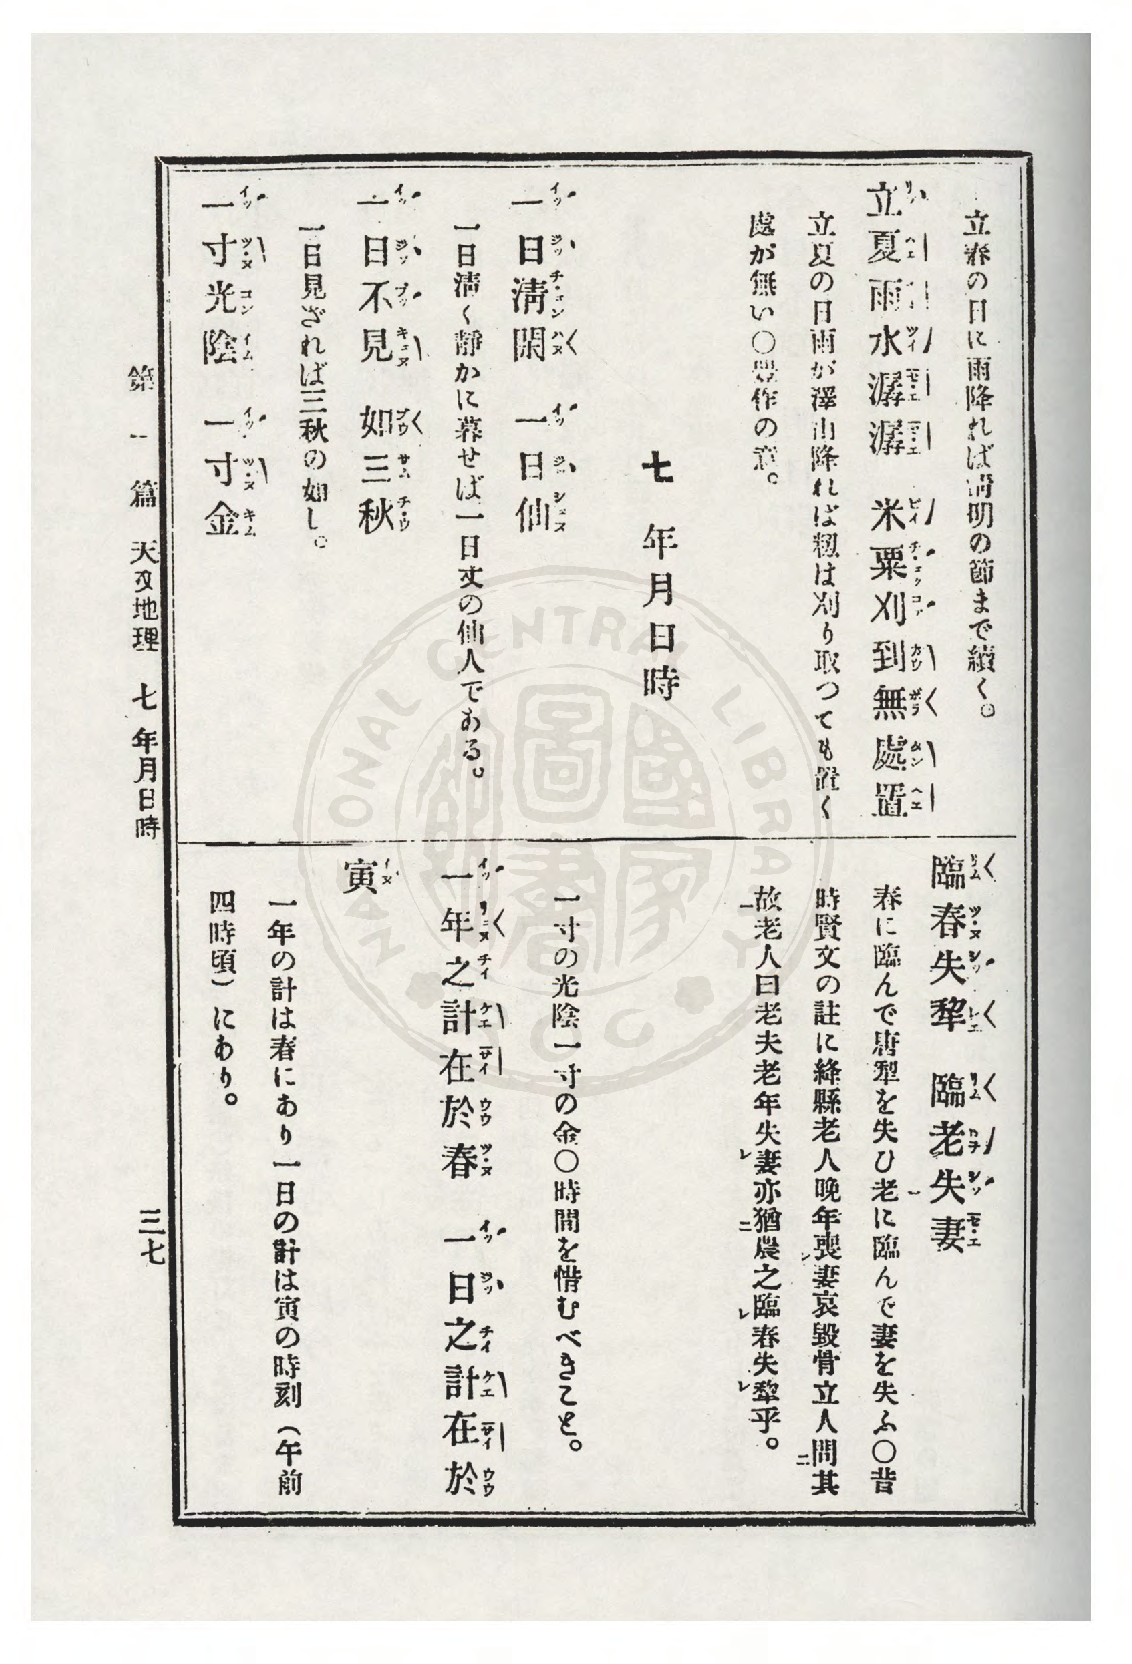 立春の日に雨降れば清明の節まで續く。
立夏雨水潺潺　米粟刈到無處置
立夏の日雨が澤山降れば籾は刈り取つても置く
處が無い〇豐作の意。
七　年月日時
一日淸閑　一日仙
一日淸く靜かに暮せば一日丈の仙人である。
一日不見　如三秋
一日見ざれば三秋の如し。
一寸光陰　一寸金
臨春失犂　臨老失妻
春に臨んで唐犁を失ひ老に臨んで妻を失ふ〇昔
時賢文の註に絳縣老人晚年喪妻哀毀骨立人問其
故老人曰老夫老年失妻亦猶農之臨春失犂乎。
一寸の光陰一寸の金〇時間を惜むべきこと。
一年之計在於春　一日之計在於
寅
一年の計は春にあり一日の計は寅の時刻（午前
四時頃）にあり。
第一篇　天文地理　七　年月日時　三七
NATIONAL CENTRAL LIBRARY
國家圖書館